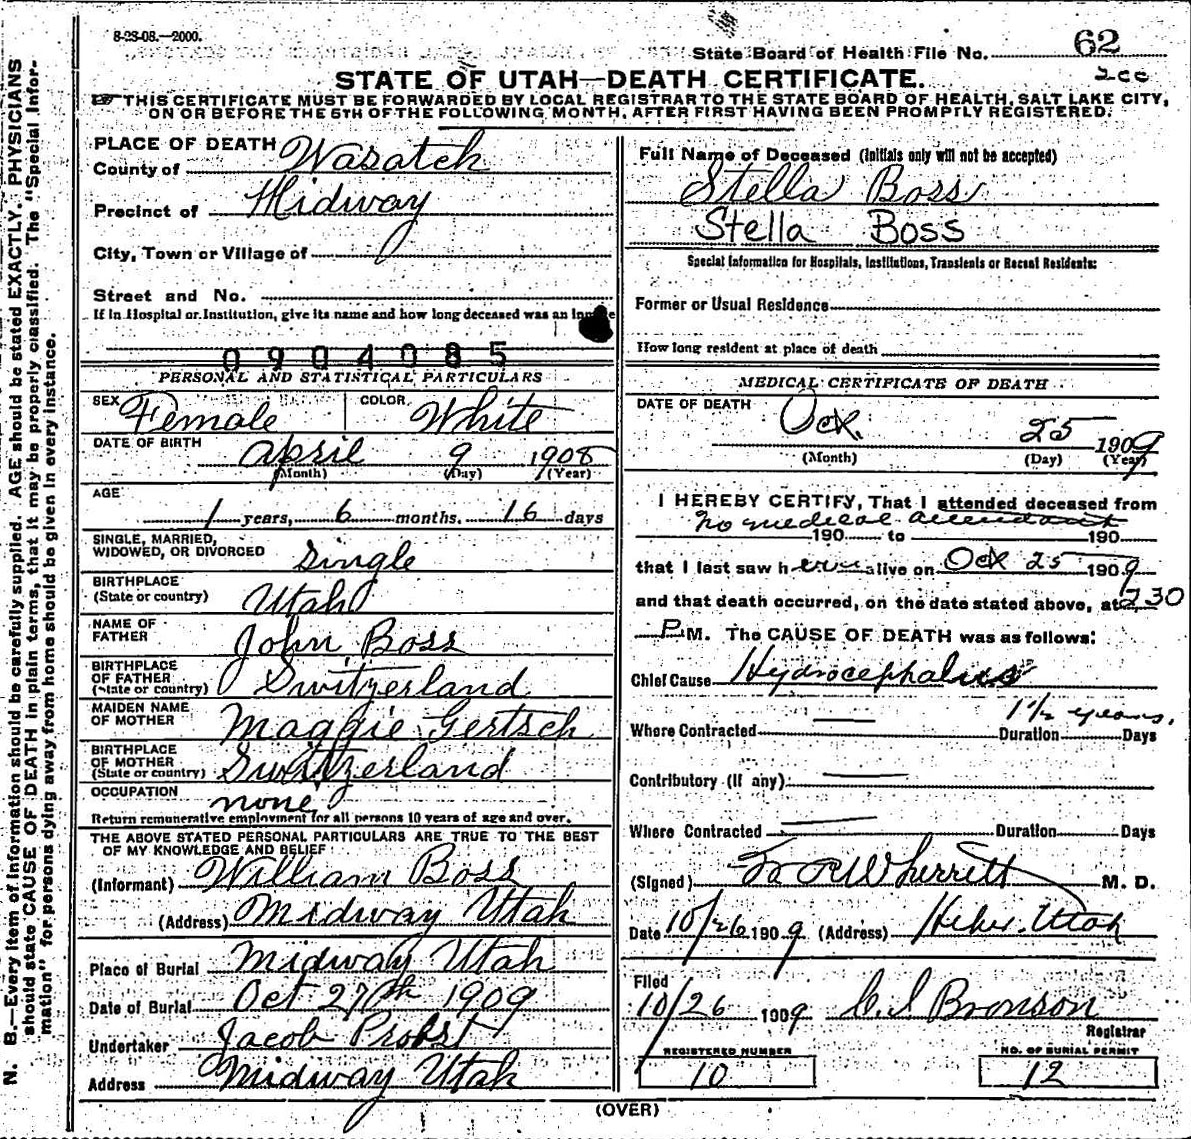 8-23-08.—2000.
State Board of Health File No. 62
200
STATE OF UTAH—DEATH CERTIFICATE.
THIS CERTIFICATE MUST BE FORWARDED BY LOCAL REGISTRAR TO THE STATE BOARD OF HEALTH, SALT LAKE CITY,
ON OR BEFORE THE 5TH OF THE FOLLOWING MONTH, AFTER FIRST HAVING BEEN PROMPTLY REGISTERED.
PLACE OF DEATH
County of Wasatch
Precinct of Midway
City, Town or Village of
Street and No.
If in Hospital or Institution, give its name and how long deceased was an
0904085
PERSONAL AND STATISTICAL PARTICULARS
SEX Female COLOR White
DATE OF BIRTH
April 9 1908
(Month) (Day) (Year)
AGE
1 years, 6 months. 16 days
SINGLE, MARRIED,
WIDOWED, OR DIVORCED Single
BIRTHPLACE
(State or country) Utah
NAME OF
FATHER John Boss
BIRTHPLACE
OF FATHER
(State or country) Switzerland
MAIDEN NAME
OF MOTHER Maggie Gertsch
BIRTHPLACE
OF MOTHER
(State or country) Switzerland
OCCUPATION
none
Return remunerative employment for all persons 10 years of age and over.
THE ABOVE STATED PERSONAL PARTICULARS ARE TRUE TO THE BEST
OF MY KNOWLEDGE AND BELIEF
(Informant) William Boss
(Address) Midway Utah
Place of Burial Midway Utah
Date of Burial Oct 27th 1909
Undertaker Jacob Probst
Address Midway Utah
Full Name of Deceased (Initials only will not be accepted)
Stella Boss
Stella Boss
Special Information for Hospitals, Institutions, Transients or Recent Residents:
Former or Usual Residence
How long resident at place of death
MEDICAL CERTIFICATE OF DEATH
DATE OF DEATH
Oct. 25 1909
(Month) (Day) (Year)
I HEREBY CERTIFY, That I attended deceased from
no medical attendant
190 to 190
that I last saw h alive on Oct 25 1909
and that death occurred, on the date stated above, at 2 30
P M. The CAUSE OF DEATH was as follows:
Chief Cause Hydrocephalus
1 1/2 years.
Where Contracted Duration Days
Contributory (If any)
Where Contracted Duration Days
(Signed) Wherritt M. D.
Date 10/26 1909 (Address) Heber Utah
Filed
10/26 1909 C S Bronson
Registrar
REGISTERED NUMBER
10
NO. OF BURIAL PERMIT
12
(OVER)
N. B.—Every item of information should be carefully supplied. AGE should be stated EXACTLY. PHYSICIANS
should state CAUSE OF DEATH in plain terms, that it may be properly classified. The "Special Infor-
mation" for persons dying away from home should be given in every instance.